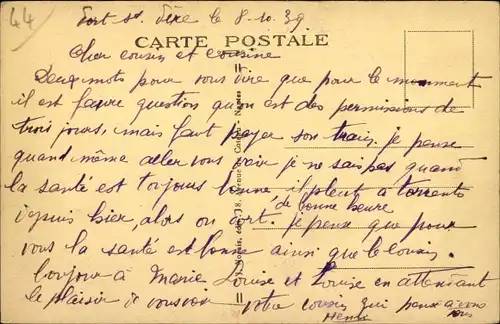 44
Port st Père le 8.10.39
CARTE POSTALE
Cher cousin et cousine
Deux mots pour vous dire que pour le momment
il est faqure question qu'on est des permissions de
trois jours, mais faut payer son train. je pense
quand même aller vous voir je ne sais pas quand
la santé est toujours bonne il pleut a torrents
depuis hier, alors on dort de bonne heure
je pense que pour
vous la santé est bonne ainsi que le cousin.
bonjour à Marie Louise et Louise en attendant
le plaisir de vous voir votre cousin qui pense à vous
Henri tous